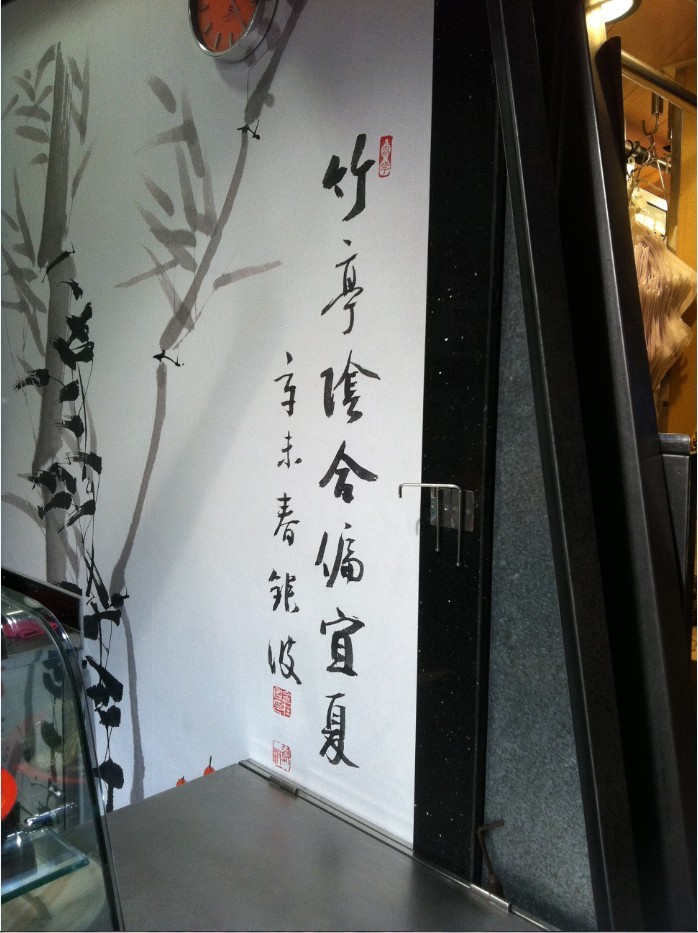 竹亭陰合偏宜夏
辛未春銀波